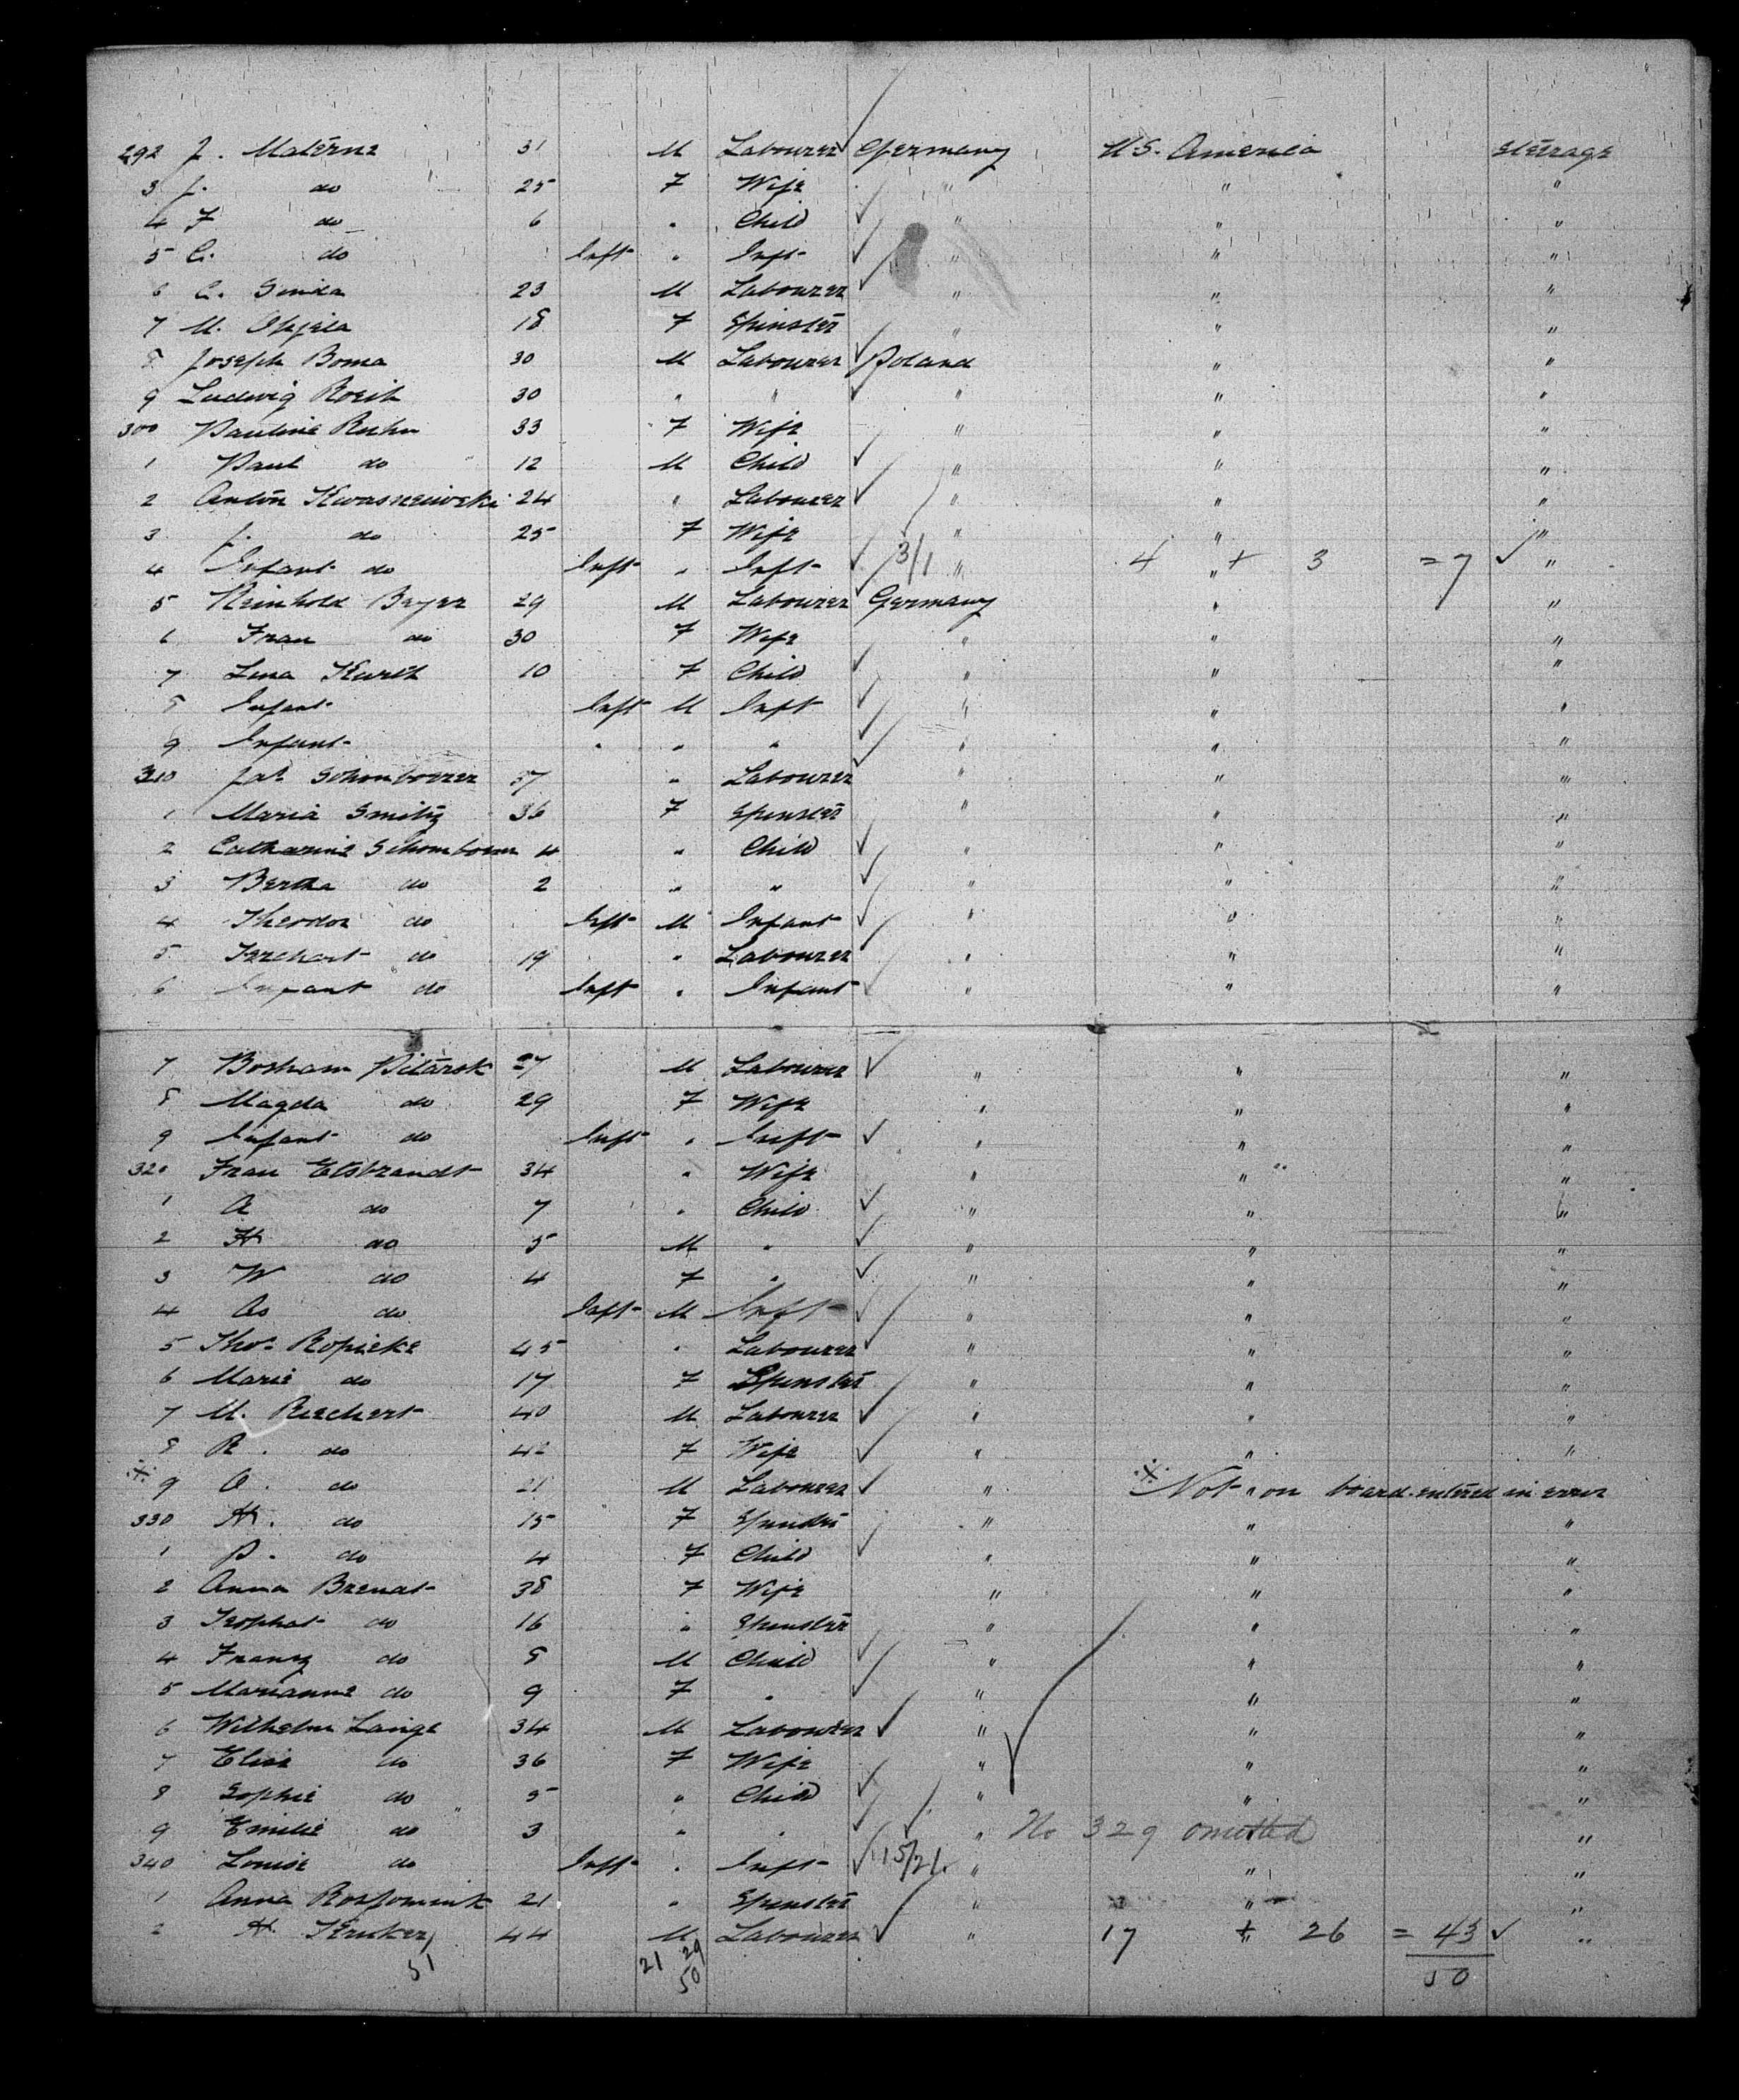 292 J. Materne 31 M Labourer Germany U.S. America steerage
3 J. do 25 F Wife " " "
4 F do 6 " Child " " "
5 C. do Inft " Inft " " "
6 C. Smida 23 M Labourer " " "
7 M. 18 F Spinster " " "
8 Joseph Boma 30 M Labourer Poland " "
9 Ludwig 30 " " " " "
300 Pauline 33 F Wife " " "
1 Paul do 12 M Child " " "
2 Anton Kwasneiwski 24 " Labourer " " "
3 J. do 25 F Wife " " "
4 Infant do Inft " Inft 3/1 " 4 " + 3 = 7 "
5 Reinhold Beyer 29 M Labourer Germany " "
6 Frau do 30 F Wife " " "
7 Lina Kurth 10 F Child " " "
8 Infant Inft M Inft " " "
9 Infant " " " " " "
310 Schomboerer 57 " Labourer " " "
1 Maria Smitz 36 F Spinster " " "
2 Catharine 4 " Child " " "
3 Bertha do 2 " " " " "
4 Theodor do Inft M Infant " " "
5 do 19 " Labourer " " "
6 Infant do Inft " Infant " " "
7 Pitarsk 27 M Labourer " " "
8 Magda do 29 F Wife " " "
9 Infant do Inft " Inft " " "
320 Frau Elsbrandt 34 " Wife " " "
1 A do 7 " Child " " "
2 H do 5 M " " " "
3 W do 4 F " " " "
4 do Inft M Inft " " "
5 Thos Ropieke 45 " Labourer " " "
6 Marie do 17 F Spinster " " "
7 M. Reichert 40 M Labourer " " "
8 R. do 42 F Wife " " "
※ 9 O. do 21 M Labourer " ※ Not " on board entered in error
330 H. do 15 F Spinster " " "
1 P. do 4 F Child " " "
2 Anna Brenat 38 F Wife " " "
3 do 16 " Spinster " " "
4 Franz do 8 M Child " " "
5 Marianne do 9 F " " " "
6 Wilhelm Lange 34 M Labourer " " "
7 Elise do 36 F Wife " " "
8 Sophie do 5 " Child " " "
9 Emilie do 3 " " " No 329 omitted "
340 Louise do Inft " Inft 15/21 " " "
1 Anna 21 " Spinster " " "
2 H. 44 M Labourer " 17 + 26 = 43 "
51 21 29 50 50